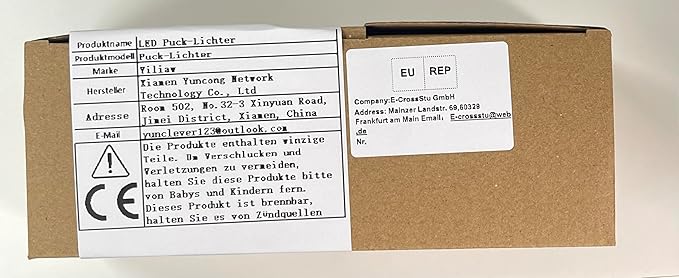 Produktname LED Puck-Lichter
Produktmodell Puck-Lichter
Marke Yiliaw
Hersteller Xiamen Yuncong Network
Technology Co., Ltd
Adresse Room 502, No.32-3 Xinyuan Road,
Jimei District, Xiamen, China
E-Mail yunclever123@outlook.com
Die Produkte enthalten winzige
Teile. Um Verschlucken und
Verletzungen zu vermeiden,
halten Sie diese Produkte bitte
von Babys und Kindern fern.
Dieses Produkt ist brennbar,
halten Sie es von Zündquellen
CE
EU REP
Company:E-CrossStu GmbH
Address: Mainzer Landstr. 69,60329
Frankfurt am Main Email: E-crossstu@web
.de
Nr.